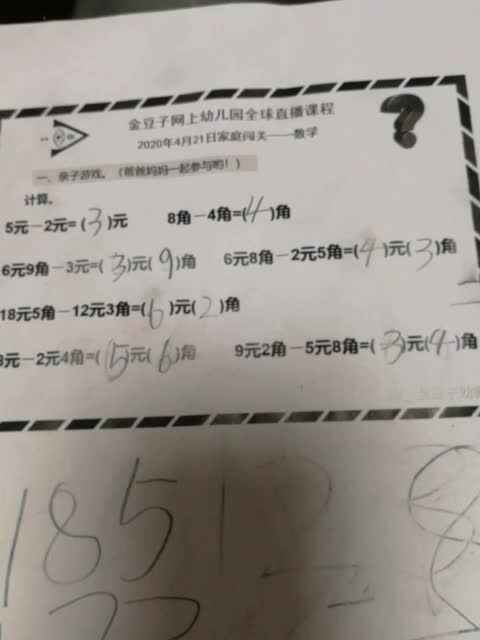 金豆子网上幼儿园全球直播课程
2020年4月21日家庭闯关——数学
?
一、亲子游戏。（爸爸妈妈一起参与哟！）
计算。
5元－2元=(3)元 8角－4角=(4)角
6元9角－3元=(3)元(9)角 6元8角－2元5角=(4)元(3)角
18元5角－12元3角=(6)元(2)角
8元－2元4角=(5)元(6)角 9元2角－5元8角=(3)元(4)角
185